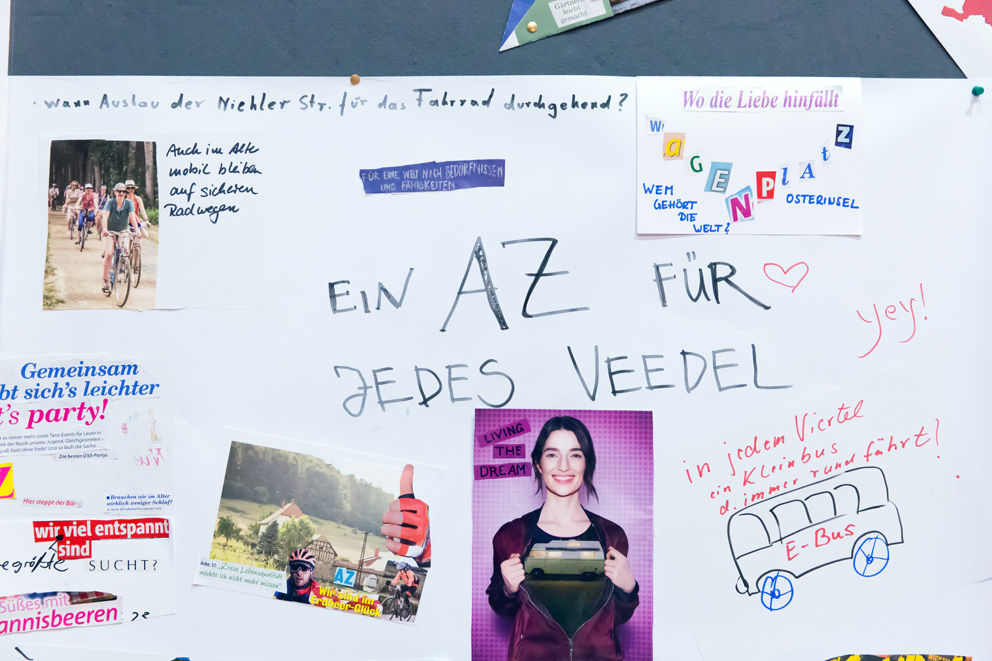 Gärtner
leicht
gemacht
· wann Ausbau der Niehler Str. für das Fahrrad durchgehend?
Wo die Liebe hinfällt
WaGENPlAtZ
WEM
GEHÖRT
DIE
WELT?
OSTERINSEL
Auch im Alte
mobil bleiben
auf sicheren
Radwegen
FÜR EINE WELT NACH BEDÜRFNISSEN
UND FÄHIGKEITEN
EIN AZ FÜR
JEDES VEEDEL
yey!
Gemeinsam
bt sich's leichter
t's party!
Die besten Ü50-Partys
Hier steppt der Bär
Brauchen wir im Alter
wirklich weniger Schlaf?
wir viel entspannt
sind
SUCHT?
Süßes mit
annisbeeren
"Diese Lebensqualität
möchte ich nicht mehr missen"
AZ
Wir sind im
Erdbeer-Glück
LIVING
THE
DREAM
in jedem Viertel
ein Kleinbus
d. immer rund fährt!
E-Bus